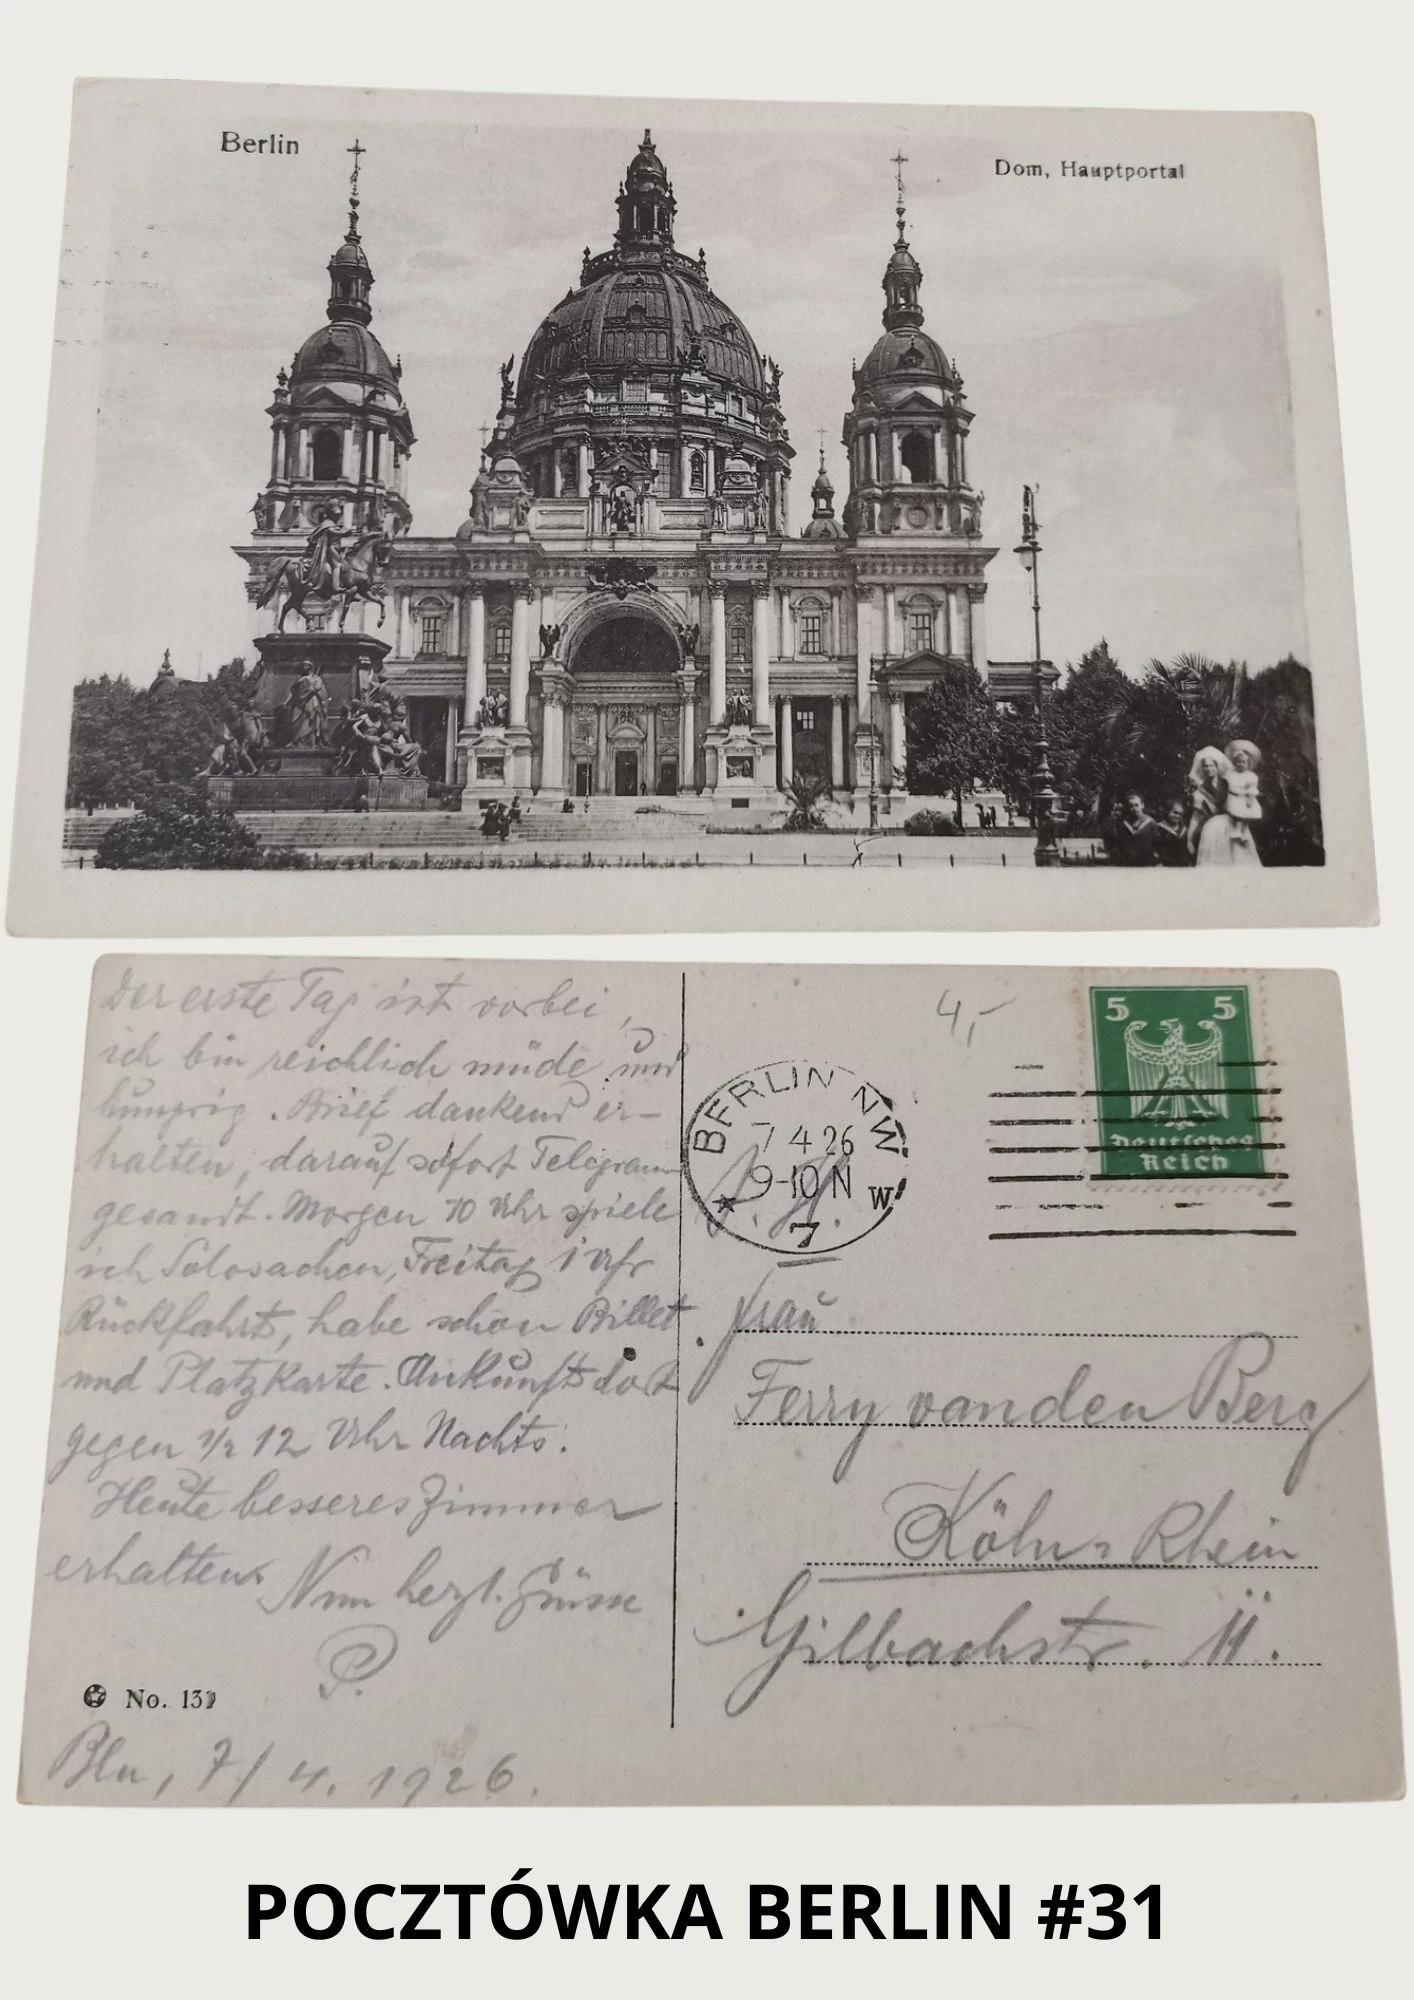 Berlin
Dom, Hauptportal
Der erste Tag ist vorbei,
ich bin reichlich müde und
hungrig. Brief dankend er-
halten, darauf sofort Telegramm
gesandt. Morgen 10 Uhr spiele
ich Solosachen, Freitag 1 Uhr
Rückfahrt, habe schon Billet
und Platzkarte. Ankunft dort
gegen 1/2 12 Uhr Nachts.
Heute besseres Zimmer
erhalten. Nun herzl. Grüsse
P.
No. 131
Bln, 7/4. 1926.
4,-
BERLIN NW
7 4 26
9-10 N
W
7
5 5
Deutsches
Reich
Frau
Ferry van den Berg
Köln-Rhein
Gilbachstr. 11.
POCZTÓWKA BERLIN #31